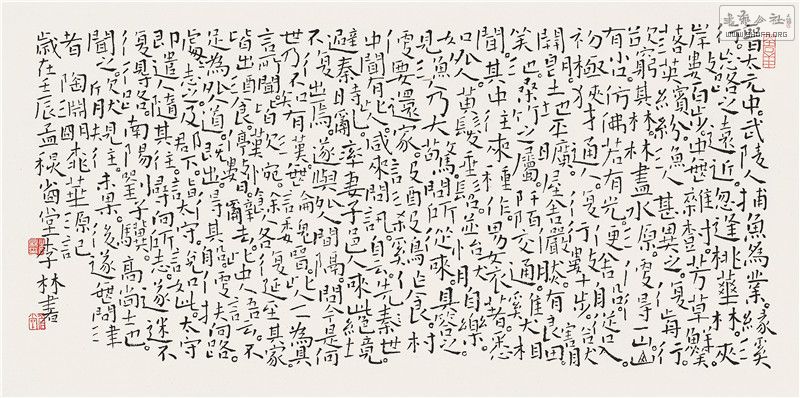 晉大元中。武陵人捕魚為業。緣溪
行。忘路之遠近。忽逢桃華林。夾
岸數百步。中無雜樹。芳草鮮
美。落英繽紛。漁人甚異之。復前行。
欲窮其林。林盡水原。便得一山。山
有小口。仿佛若有光。便舍船。從口入。
初極狹。才通人。復行數十步。豁然
開朗。土地平廣。屋舍儼然。有良田
美池桑竹之屬。阡陌交通。雞犬相
聞。其中往來種作。男女衣著。悉
如外人。黃髮垂髫。並怡然自樂。
見漁人。乃大驚。問所從來。具答之。
便要還家。設酒殺雞作食。村
中聞有此人。咸來問訊。自云先世
避秦時亂。率妻子邑人來此絕境
不復出焉。遂與外人間隔。問今是何
世。乃不知有漢。無論魏晉。此人一一為具
言所聞。皆歎惋。餘人各復延至其家。
皆出酒食。停數日。辭去。此中人語云。不
足為外人道。既出。得其船。便扶向路。
處處志之。及郡下。詣太守。說如此。太守
即遣人隨其往。尋向所志。遂迷不
復得路。南陽劉子驥。高尚士也。
聞之。欣然規往。未果。尋病終。後遂無問津
者 陶淵明桃華源記
歲在壬辰孟秋尚堂李林書